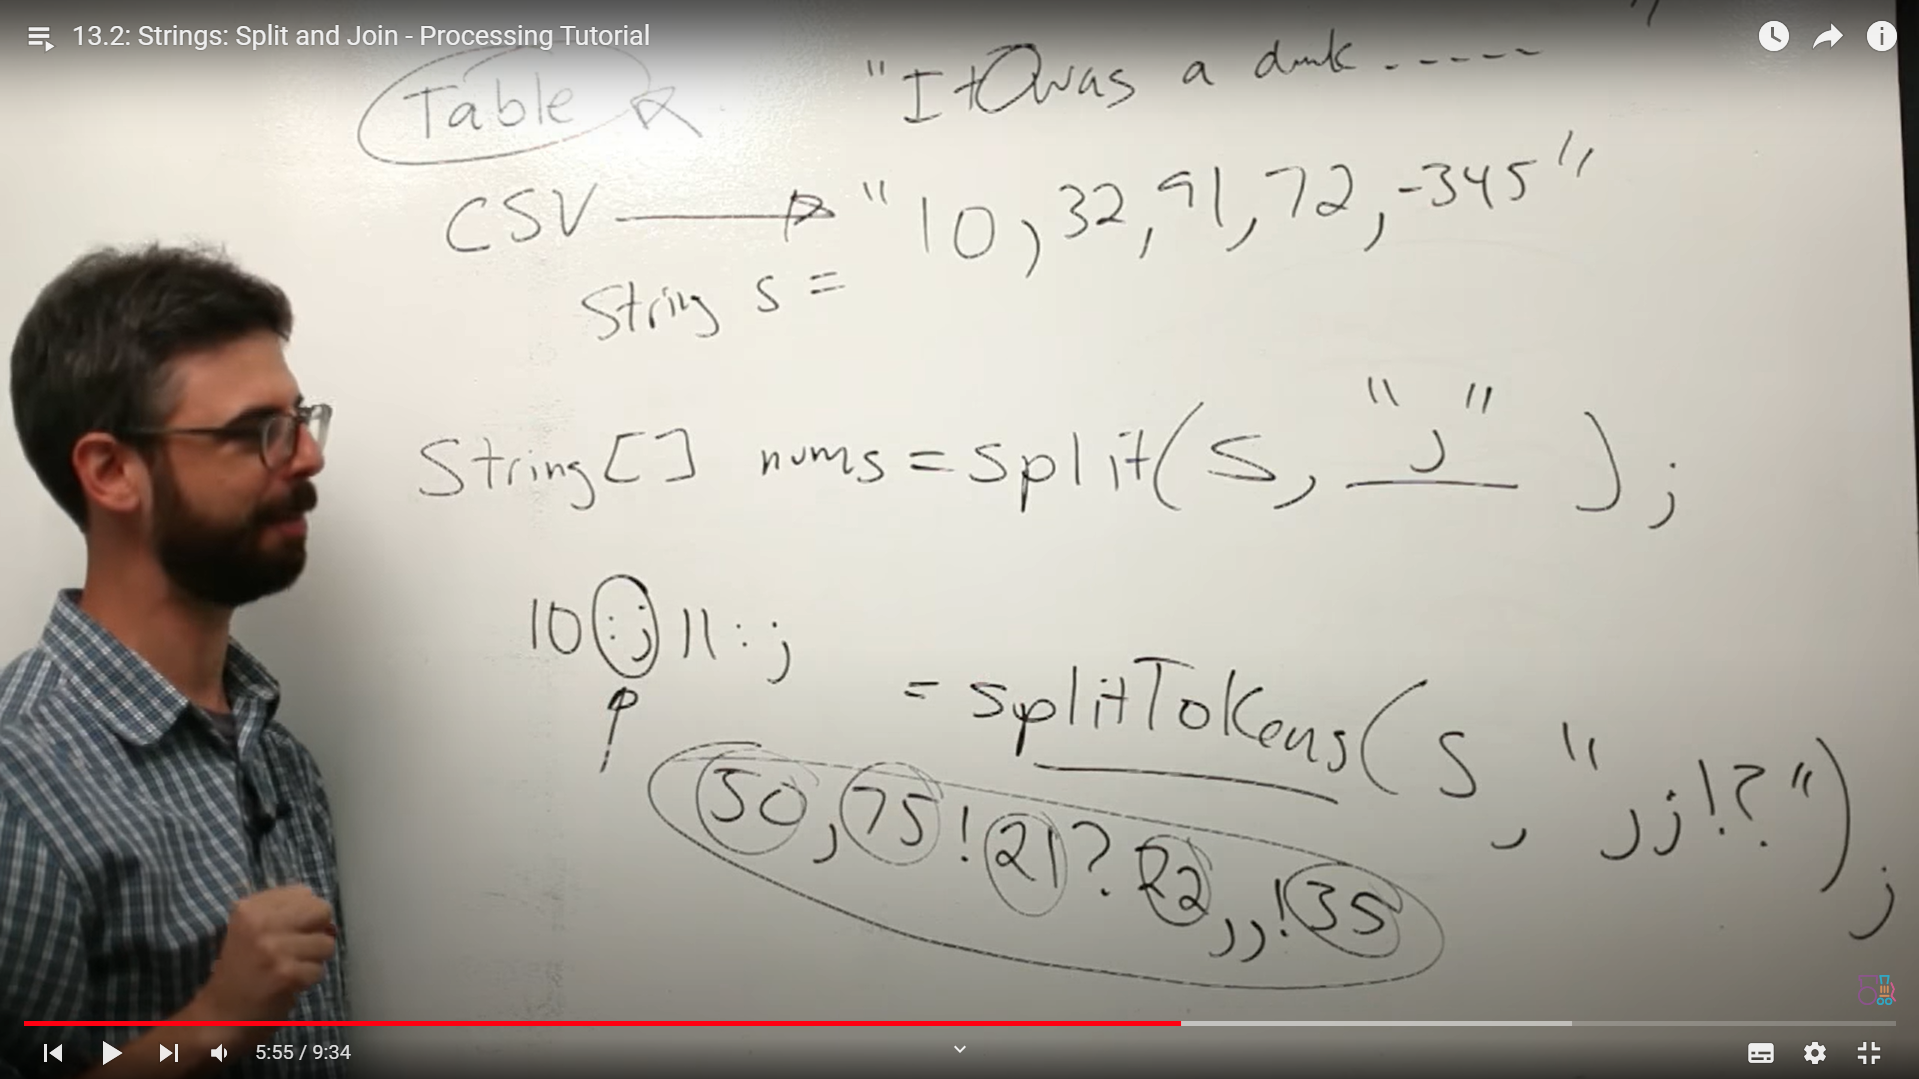 13.2: Strings: Split and Join - Processing Tutorial
"It was a dark ------"
Table
CSV → "10, 32, 91, 72, -345"
String s =
String[] nums = split(S, ",");
10:;11:;
= splitTokens(S, ",;!?");
50,75!21?22,,!35
5:55 / 9:34